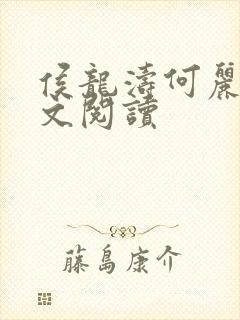 侯龍濤何麗
文閱讀
藤島康介